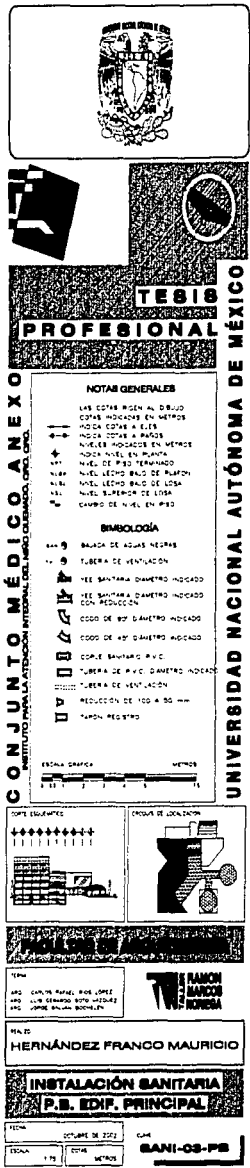 TESIS
PROFESIONAL
CONJUNTO MÉDICO ANEXO
INSTITUTO PARA LA ATENCIÓN INTEGRAL DEL NIÑO QUEMADO, QRO. QRO.
UNIVERSIDAD NACIONAL AUTÓNOMA DE MÉXICO
NOTAS GENERALES
LAS COTAS RIGEN AL DIBUJO
COTAS INDICADAS EN METROS
INDICA COTAS A EJES
INDICA COTAS A PAÑOS
NIVELES INDICADOS EN METROS
INDICA NIVEL EN PLANTA
NIVEL DE PISO TERMINADO
NIVEL LECHO BAJO DE PLAFON
NIVEL LECHO BAJO DE LOSA
NIVEL SUPERIOR DE LOSA
CAMBIO DE NIVEL EN PISO
SIMBOLOGÍA
BAN BAJADA DE AGUAS NEGRAS
TV TUBERIA DE VENTILACIÓN
YEE SANITARIA DIAMETRO INDICADO
YEE SANITARIA DIAMETRO INDICADO
CON REDUCCIÓN
CODO DE 90° DIÁMETRO INDICADO
CODO DE 45° DIÁMETRO INDICADO
COPLE SANITARIO P.V.C.
TUBERIA DE P.V.C. DIAMETRO INDICADO
TUBERIA DE VENTILACIÓN
REDUCCIÓN DE 100 A 50 mm
TAPÓN REGISTRO
ESCALA GRAFICA METROS
CORTE ESQUEMÁTICO
CROQUIS DE LOCALIZACIÓN
FACULTAD DE ARQUITECTURA
TERNA
ARQ. CARLOS RAFAEL RIOS LÓPEZ
ARQ. LUIS GERARDO SOTO VAZQUEZ
ARQ. JORGE
TALLER
RAMON
MARCOS
NORIEGA
REALIZO
HERNÁNDEZ FRANCO MAURICIO
INSTALACIÓN SANITARIA
P.B. EDIF. PRINCIPAL
FECHA
OCTUBRE DE 2002
CLAVE
ESCALA
1:75
COTAS
METROS
SANI-03-PB